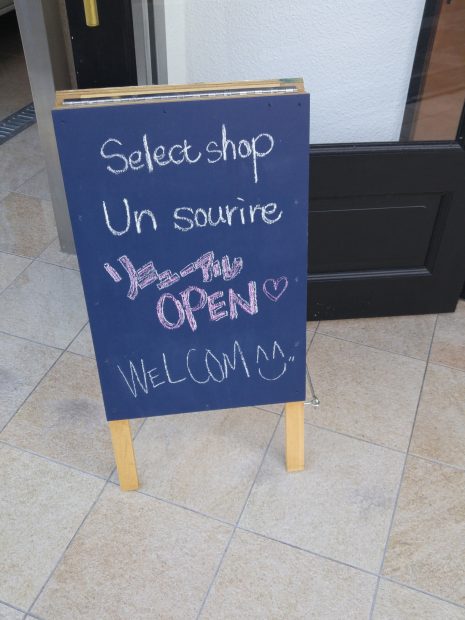 Select shop
Un sourire
リニューアル
OPEN♡
WELCOM